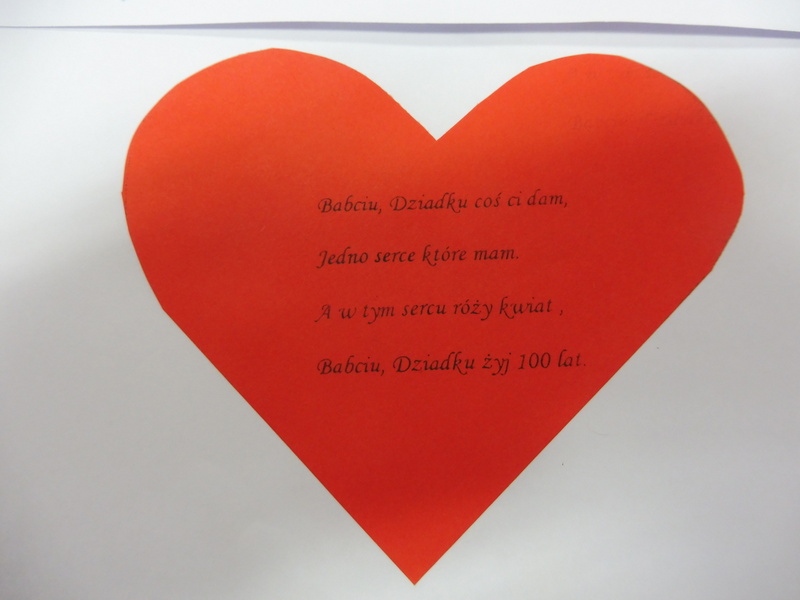 Babciu, Dziadku coś ci dam,
Jedno serce które mam.
A w tym sercu róży kwiat ,
Babciu, Dziadku żyj 100 lat.